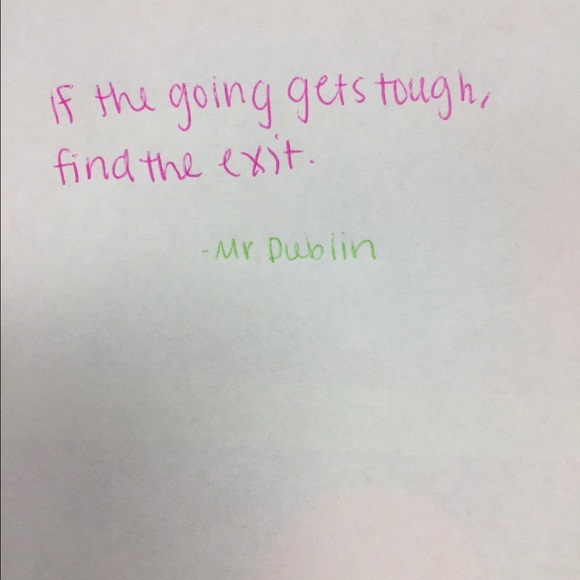 If the going gets tough,
find the exit.
-Mr Dublin